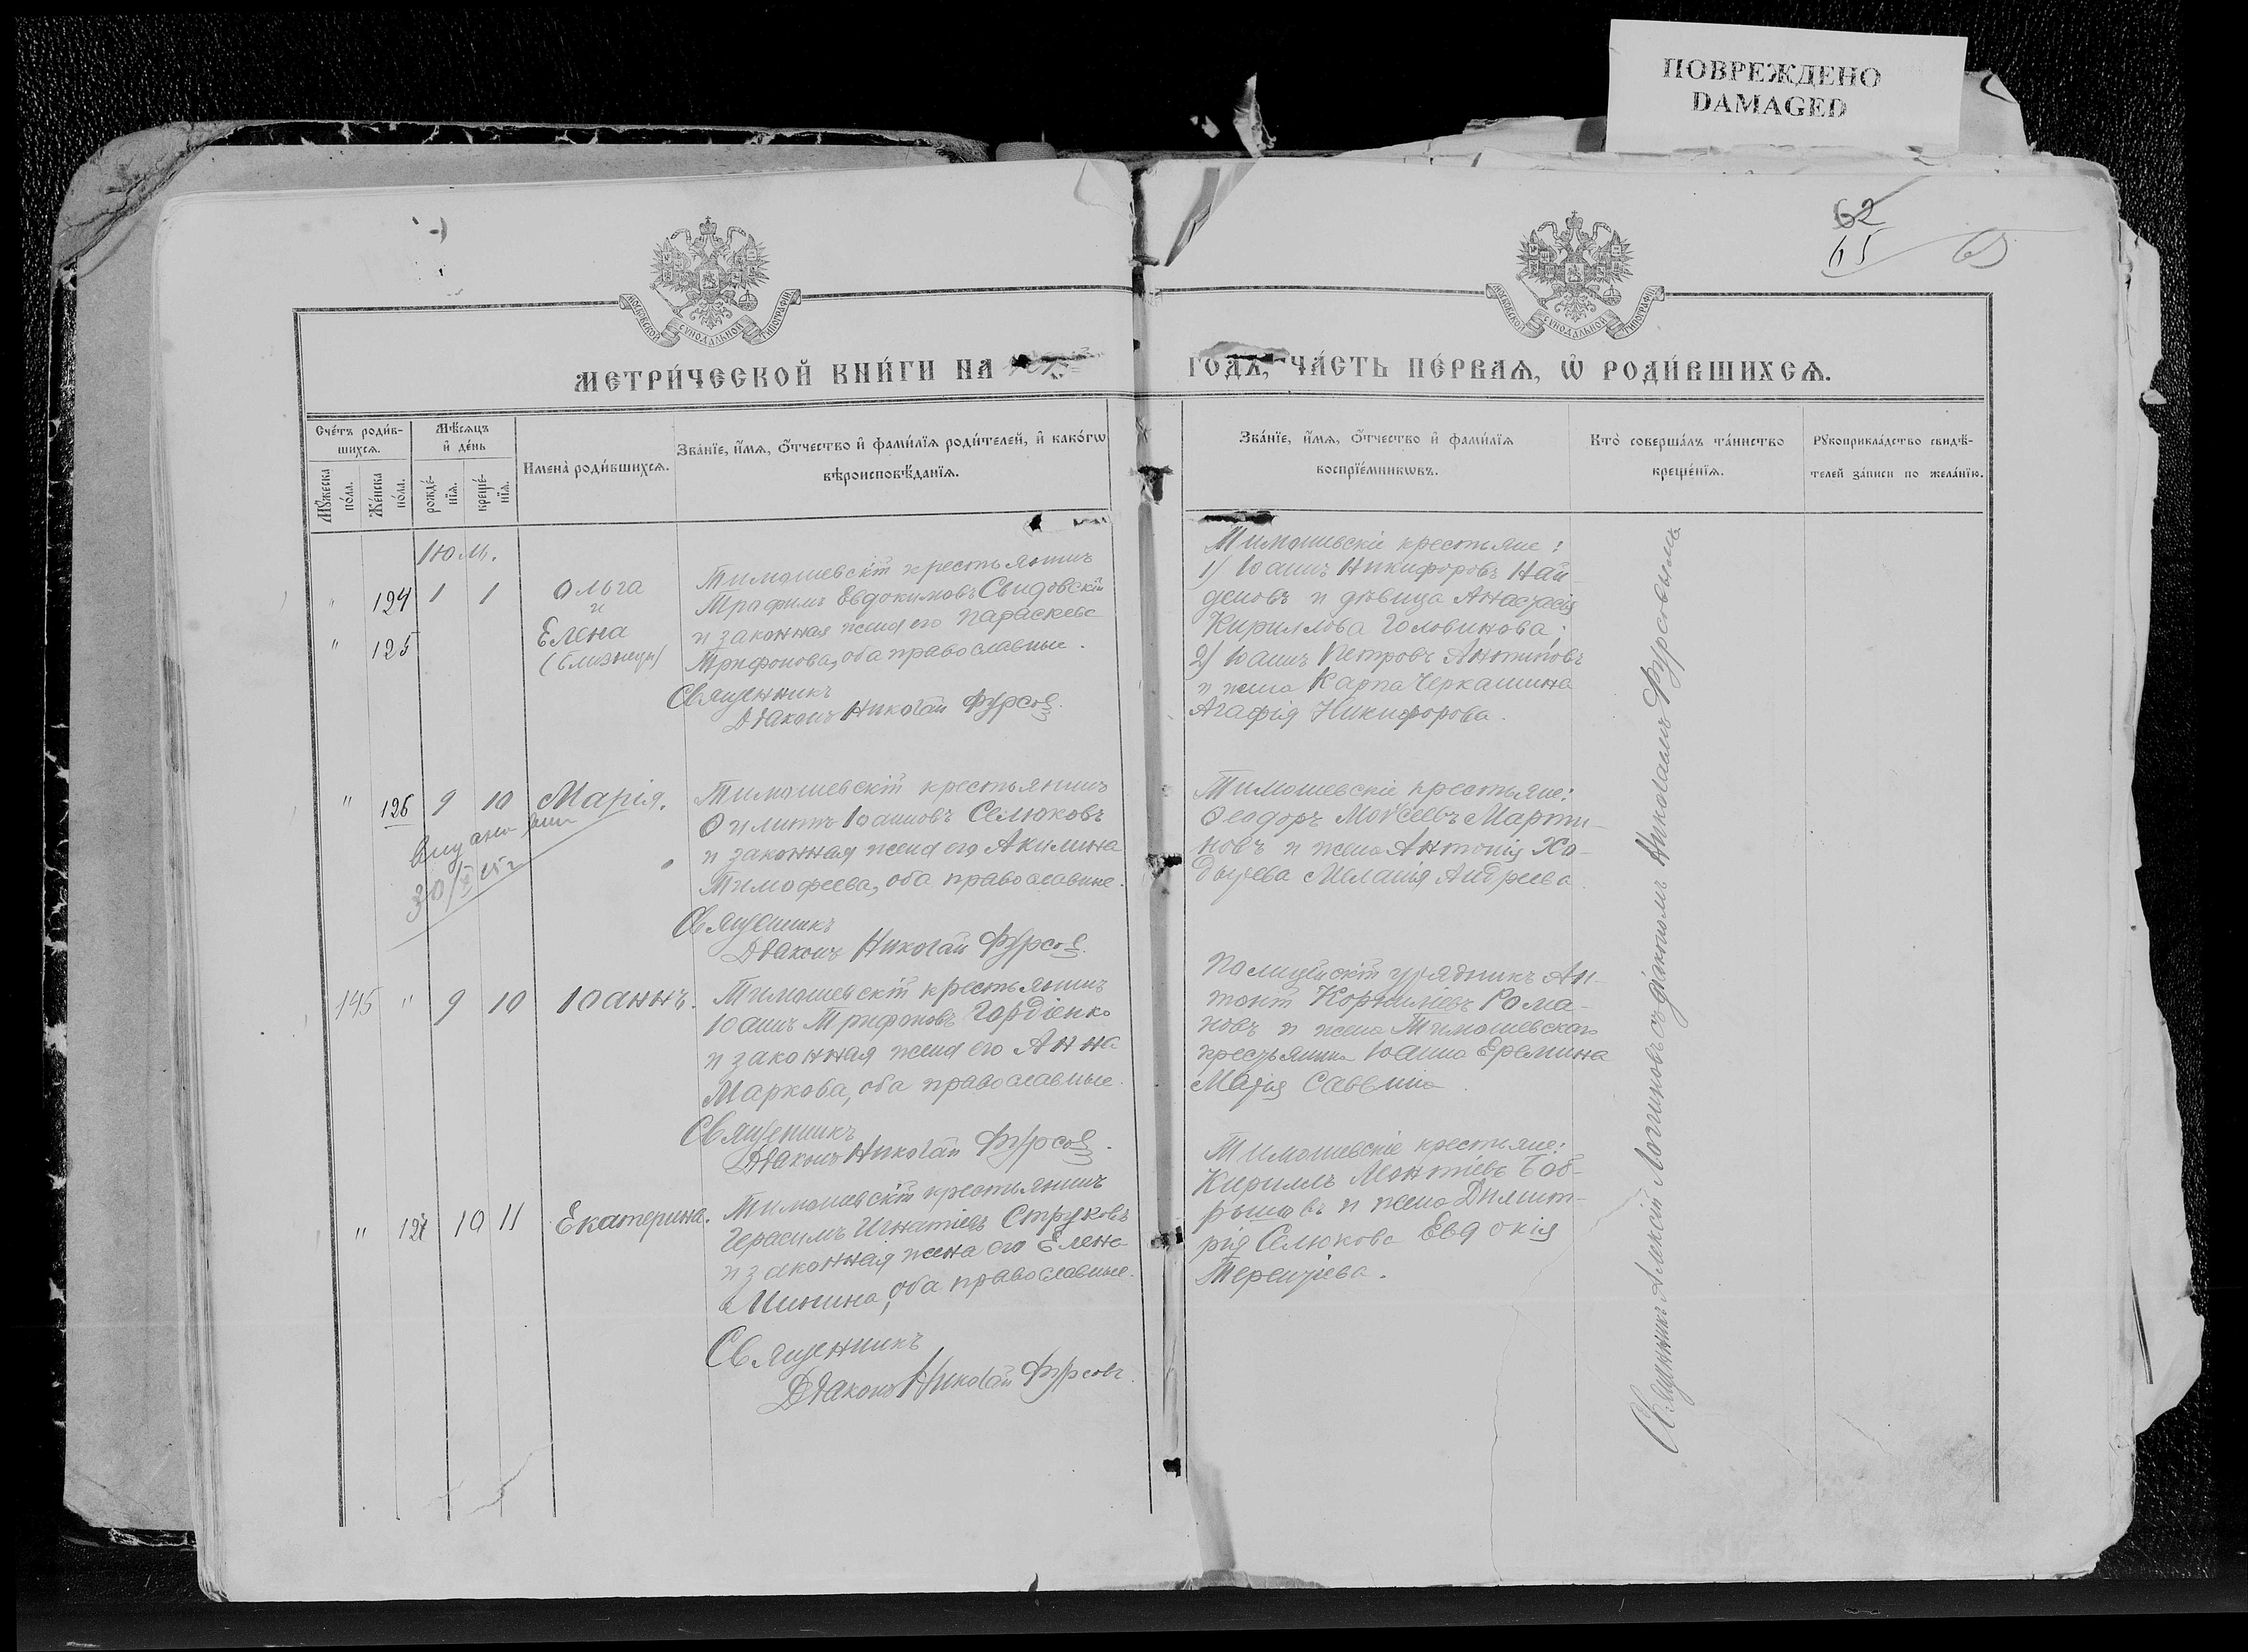 ПОВРЕЖДЕНО
DAMAGED
62
65
65
МОСКОВСКОЙ СѴНОДАЛЬНОЙ ТИПОГРАФІИ
МОСКОВСКОЙ СѴНОДАЛЬНОЙ ТИПОГРАФІИ
МЕТРИ́ЧЕСКОЙ КНИ́ГИ НА
ГОДЪ, ЧА́СТЬ ПЕ́РВАѦ, Ѡ҆ РОДИ́ВШИХСѦ.
Сче́тъ роди́в-
шихсѧ.
Мꙋ́жеска по́ла.
Же́нска по́ла.
Мѣ́сѧцъ
и҆ де́нь
рожде́-
нїѧ.
креще́-
нїѧ.
Имена̀ роди́вшихсѧ.
Зва́нїе, и҆́мѧ, ѻ҆́тчество и҆ фами́лїѧ роди́телей, и҆ како́гѡ
вѣроисповѣ́данїѧ.
Зва́нїе, и҆́мѧ, ѻ҆́тчество и҆ фами́лїѧ
воспрїе́мникѡвъ.
Кто̀ соверша́лъ та́инство
креще́нїѧ.
Рꙋкоприкла́дство свидѣ́-
телей за́писи по жела́нїю.
Юль.
" 124 1 1 Ольга
и
" 125 Елена
(близнецы)
Тимошевскій крестьянинъ
Трофимъ Евдокимовъ Свидовскій
и законная жена его Параскева
Трифонова, оба православные.
Священникъ
Діаконъ Николай Фурсов.
Тимошевскіе крестьяне:
1) Іоаннъ Никифоровъ Най-
деновъ и дѣвица Анастасія
Кириллова Головинова;
2) Іоаннъ Петровъ Антиповъ
и жена Карпа Черкашина
Агафія Никифорова.
" 126 9 10 Марія.
30/
Тимошевскій крестьянинъ
Филиппъ Іоанновъ Селюковъ
и законная жена его Акилина
Тимофеева, оба православные.
Священникъ
Діаконъ Николай Фурсов.
Тимошевскіе крестьяне:
Ѳеодоръ Моѵсеевъ Марти-
новъ и жена Антонія Хо-
Меланія Андреева.
145 " 9 10 Іоаннъ.
Тимошевскій крестьянинъ
Іоаннъ Трифоновъ Гордіенко
и законная жена его Анна
Маркова, оба православные.
Священникъ
Діаконъ Николай Фурсов.
Полицейскій урядникъ Ан-
тоній Корниліевъ Рома-
новъ и жена Тимошевскаго
крестьянина Іоанна Еремина
Марія Саввина.
" 127 10 11 Екатерина.
Тимошевскій крестьянинъ
Герасимъ Игнатіевъ Струковъ
и законная жена его Елена
Минина, оба православные.
Священникъ
Діаконъ Николай Фурсовъ.
Тимошевскіе крестьяне:
Кириллъ Леонтіевъ Боб-
рышовъ и жена Димит-
рія Селюкова Евдокія
Терентіева.
Священникъ Алексій Логиновъ съ діакономъ Николаемъ Фурсовымъ